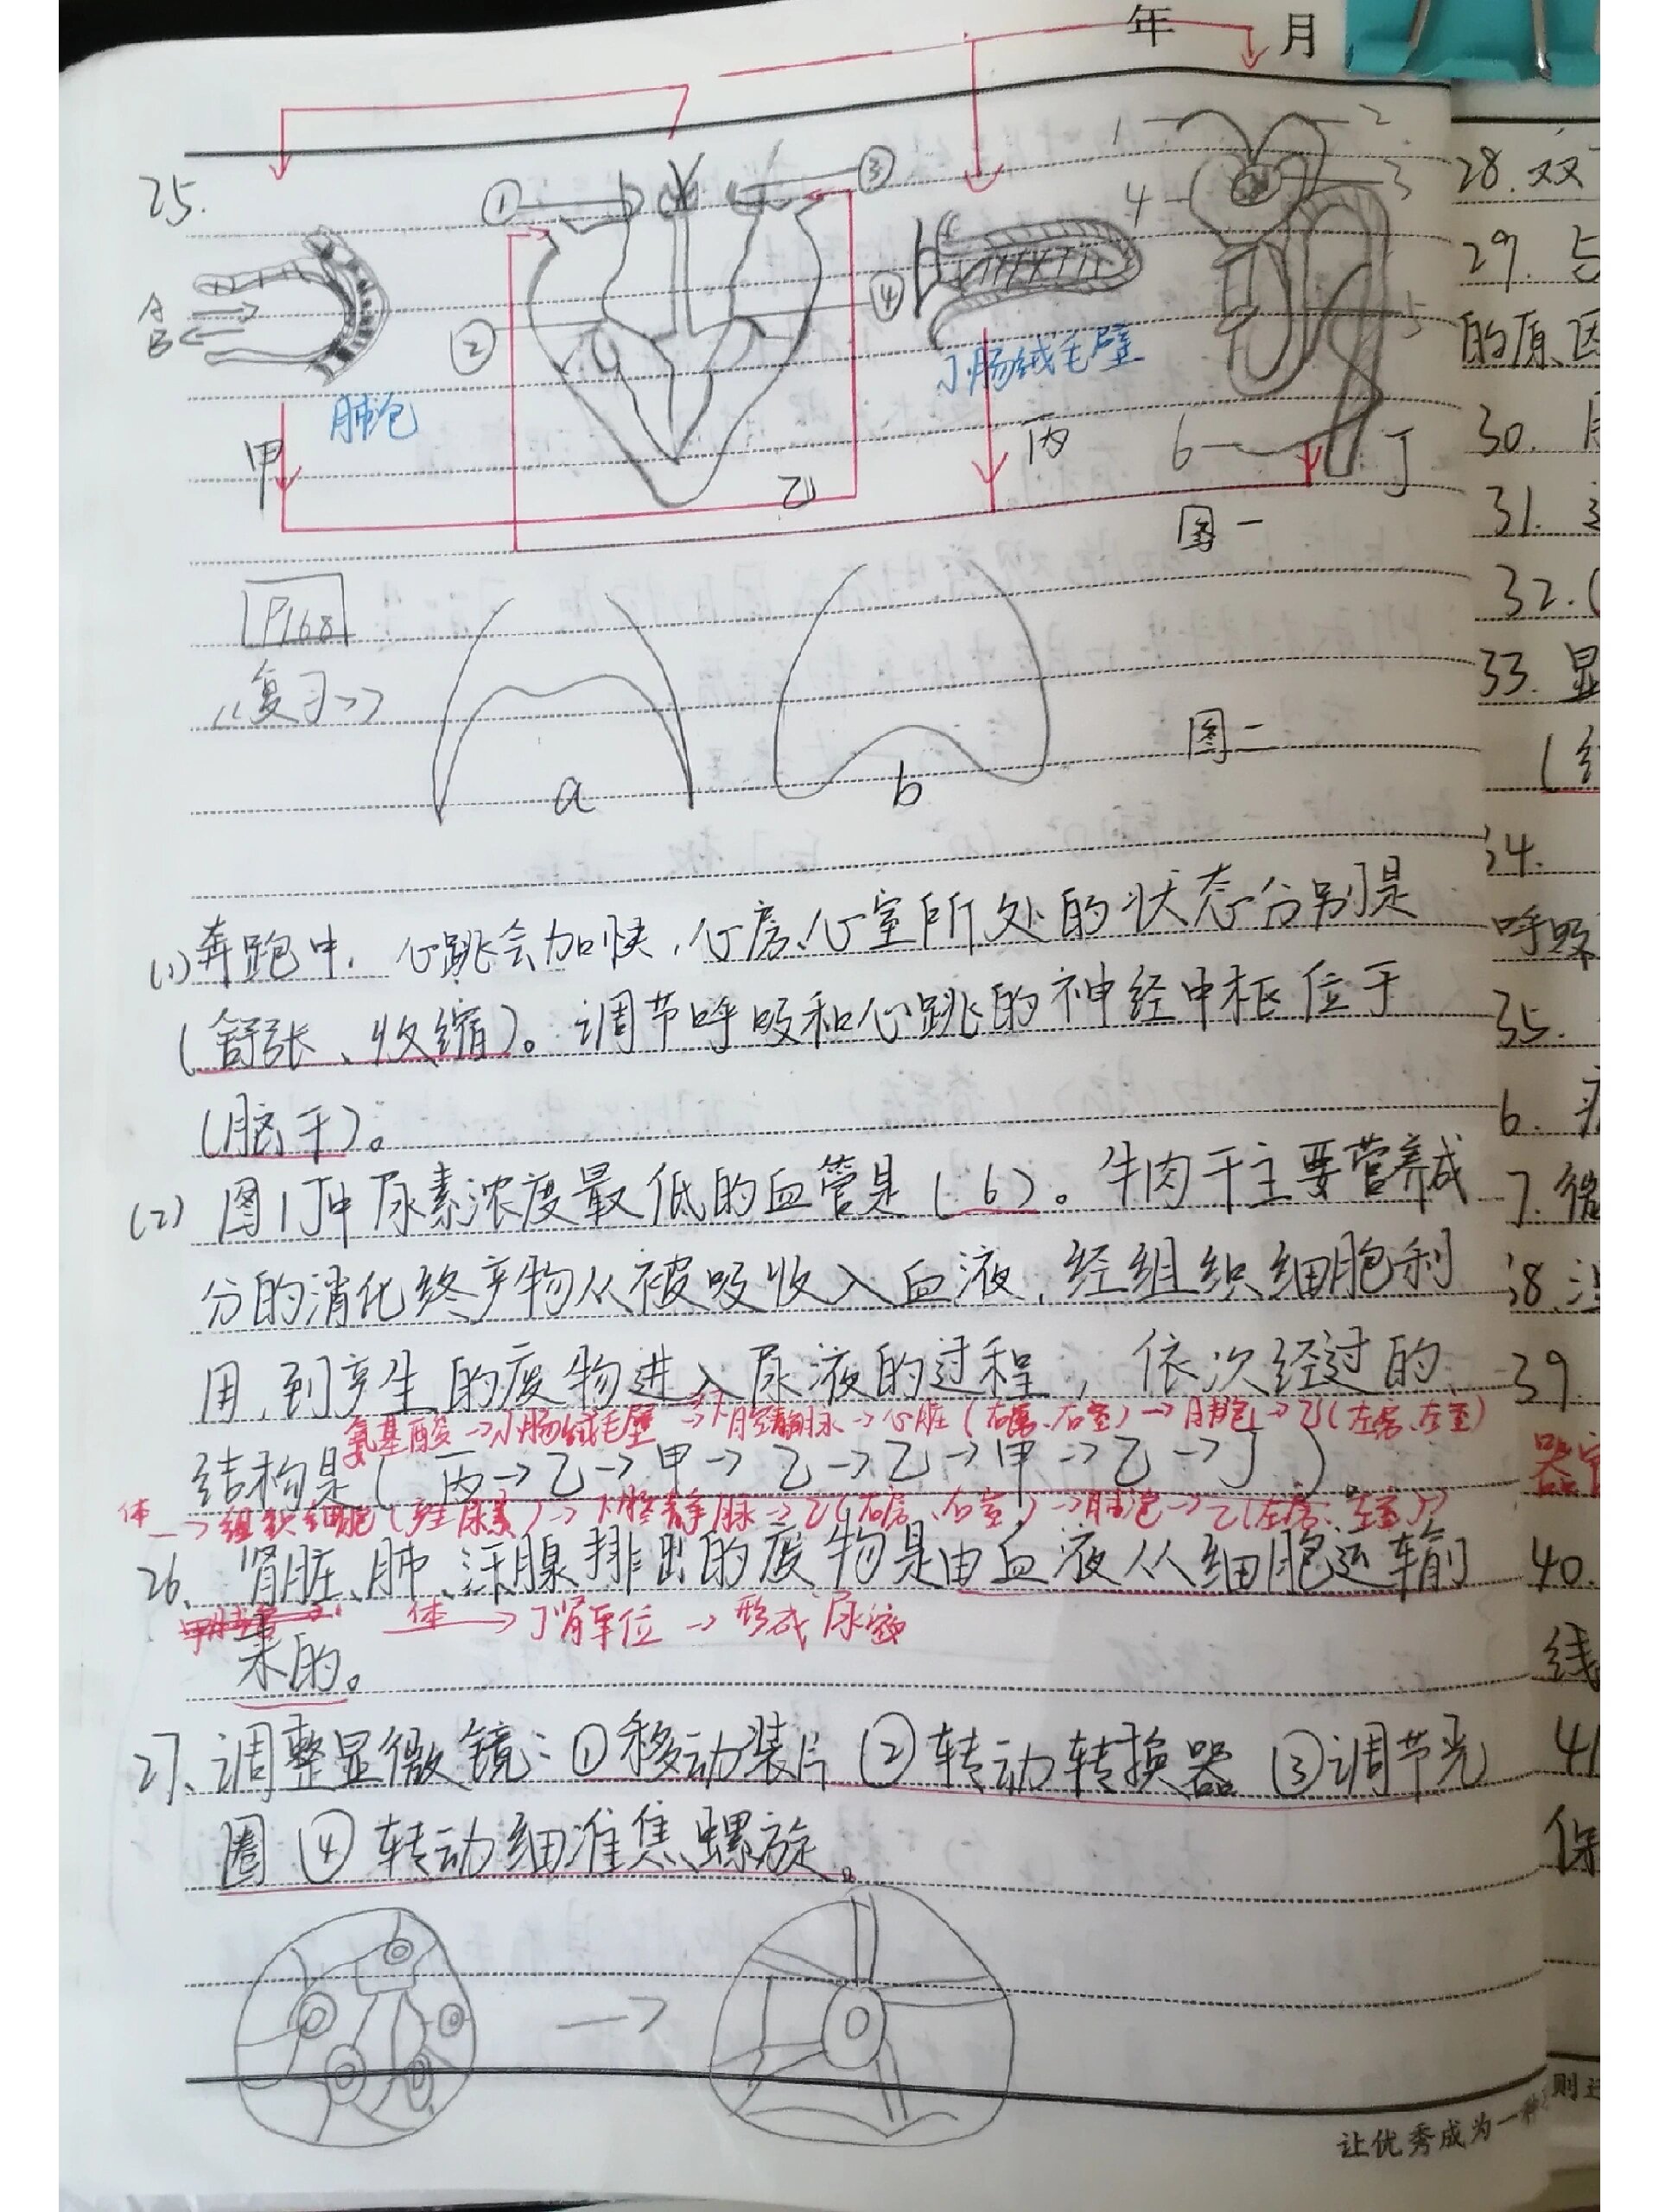 年 月
25.
① ③
1 2
3
4
A
B
② ④
5
肺包
小肠绒毛壁
甲 乙 丙 6 丁
图一
P168
《复习》
a b 图二
(1)奔跑中,心跳会加快,心房、心室所处的状态分别是
(舒张、收缩)。调节呼吸和心跳的神经中枢位于
(脑干)。
(2) 图1丁中尿素浓度最低的血管是(6)。牛肉干主要营养成
分的消化终产物从被吸收入血液,经组织细胞利
用,到产生的废物进入尿液的过程,依次经过的
氨基酸→小肠绒毛壁→下腔静脉→心脏(右房、右室)→肺泡→乙(左房、左室)
结构是(丙→乙→甲→乙→乙→甲→乙→丁)
体→组织细胞(产尿素)→下腔静脉→乙(右房、右室)→肺泡→乙(左房、左室)
26、肾脏、肺、汗腺排出的废物是由血液从细胞运输
体→丁肾单位→形成尿液
来的。
27、调整显微镜:①移动装片②转动转换器③调节光
圈④转动细准焦螺旋。
→
让优秀成为一种
28.双
29.
的原因
30.
31.
32.(
33.显
34.
呼吸
35.
6.
7.
38.
39
40.
线
41
保
则